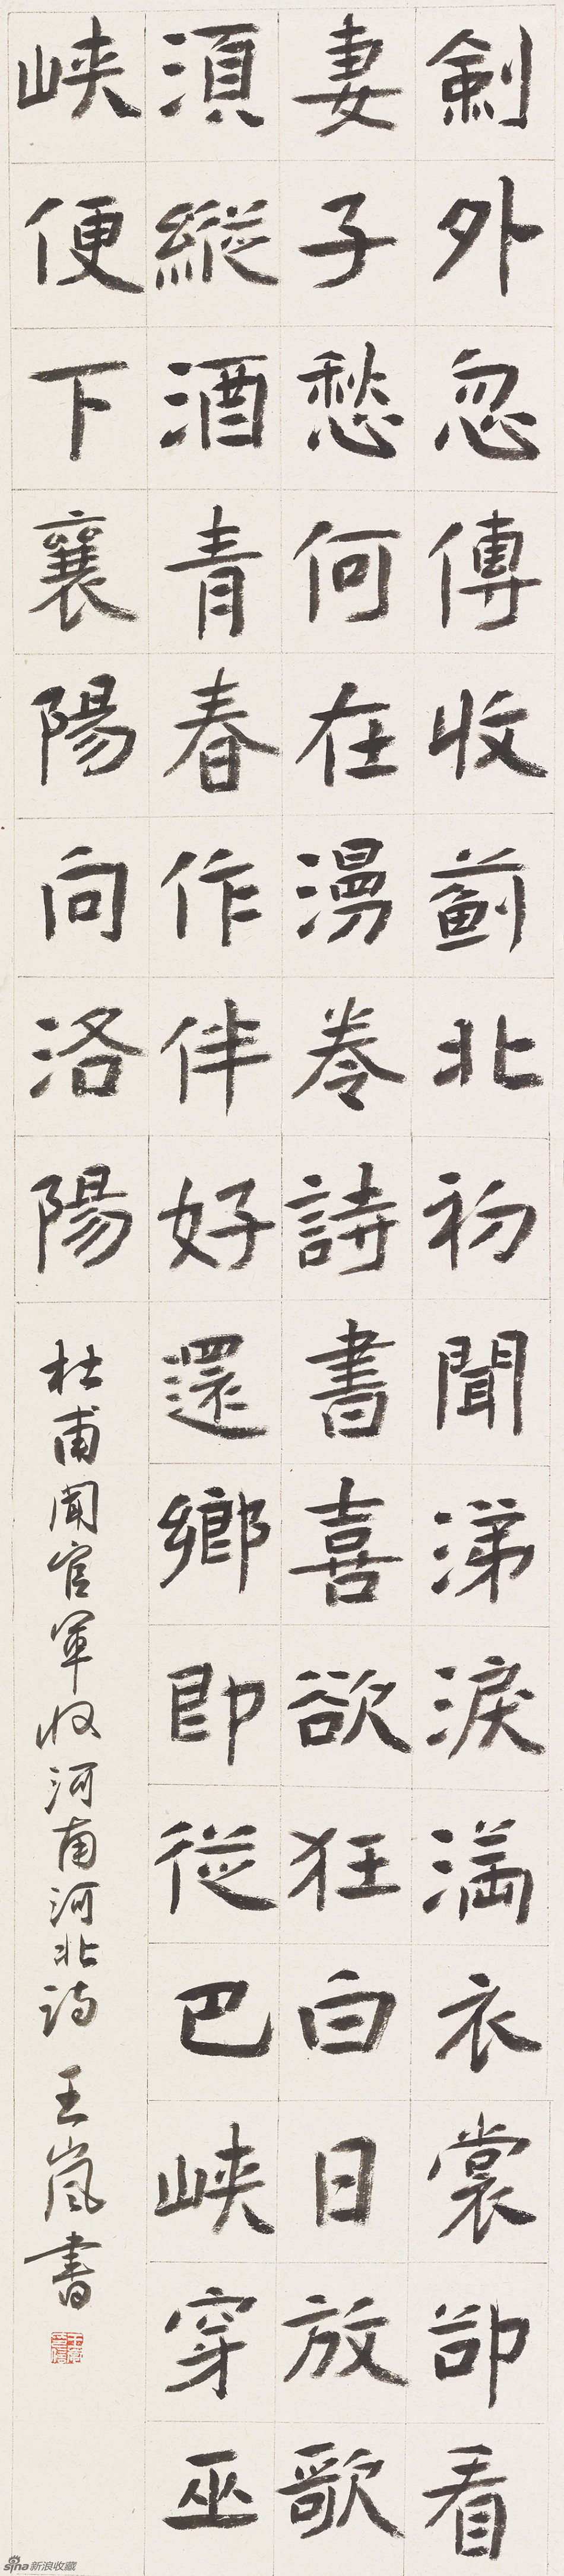 劍外忽傳收薊北初聞涕淚滿衣裳卻看
妻子愁何在漫卷詩書喜欲狂白日放歌
須縱酒青春作伴好還鄉即從巴峽穿巫
峽便下襄陽向洛陽
杜甫聞官軍收河南河北詩 王嵐書
sina新浪收藏